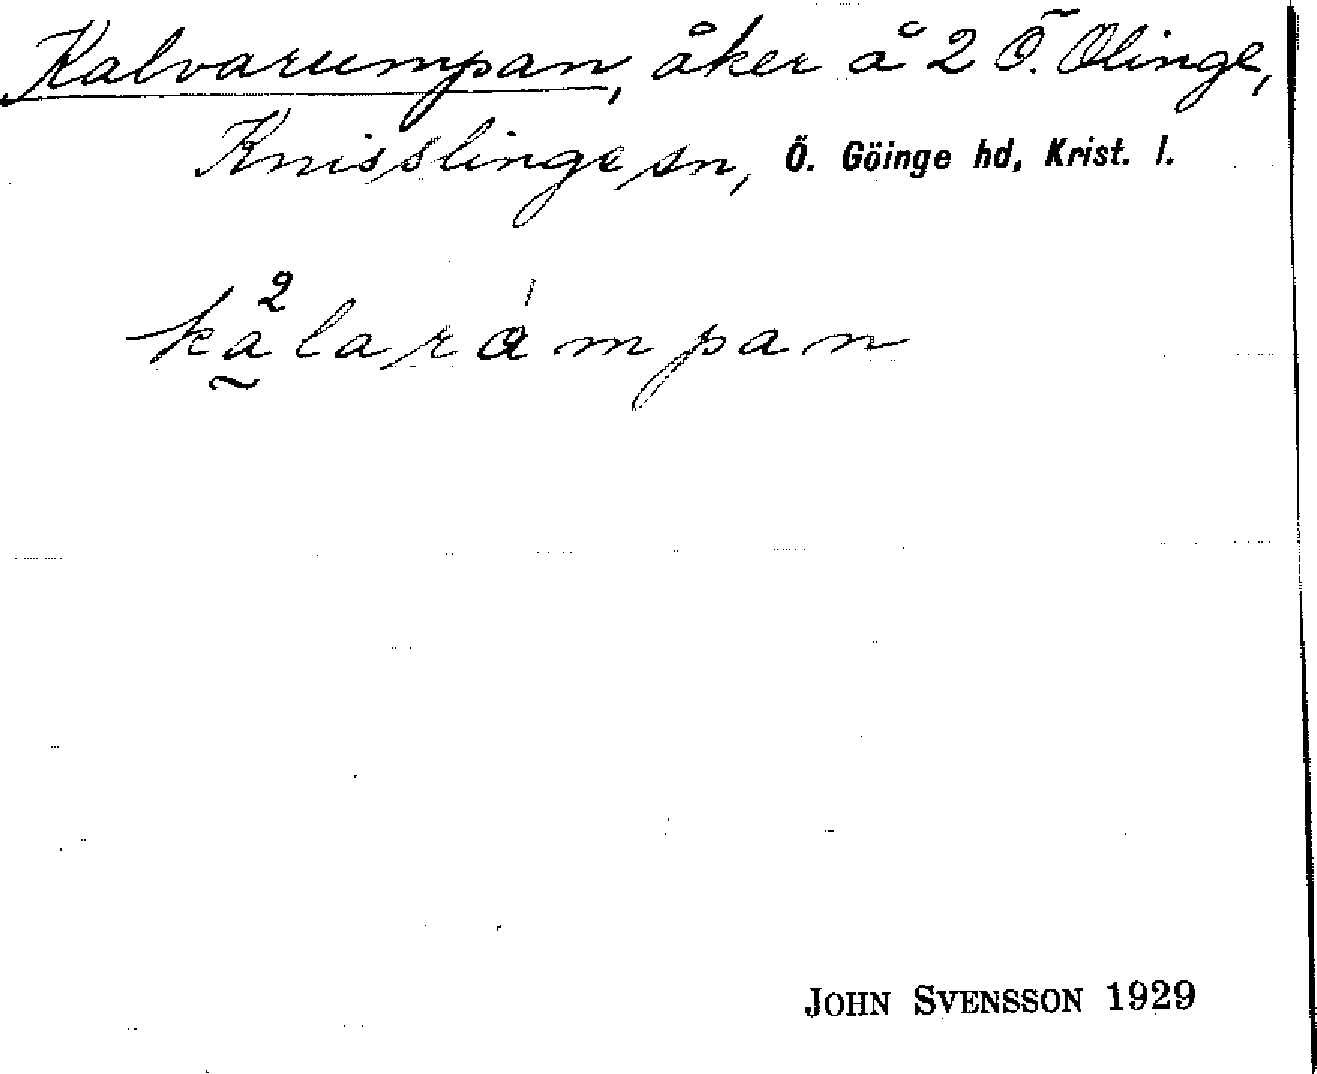 Kalvarumpan, åker å 2 Ö. Olinge,
Knisslinge sn, Ö. Göinge hd, Krist. l.
ka̰²larámpan
JOHN SVENSSON 1929